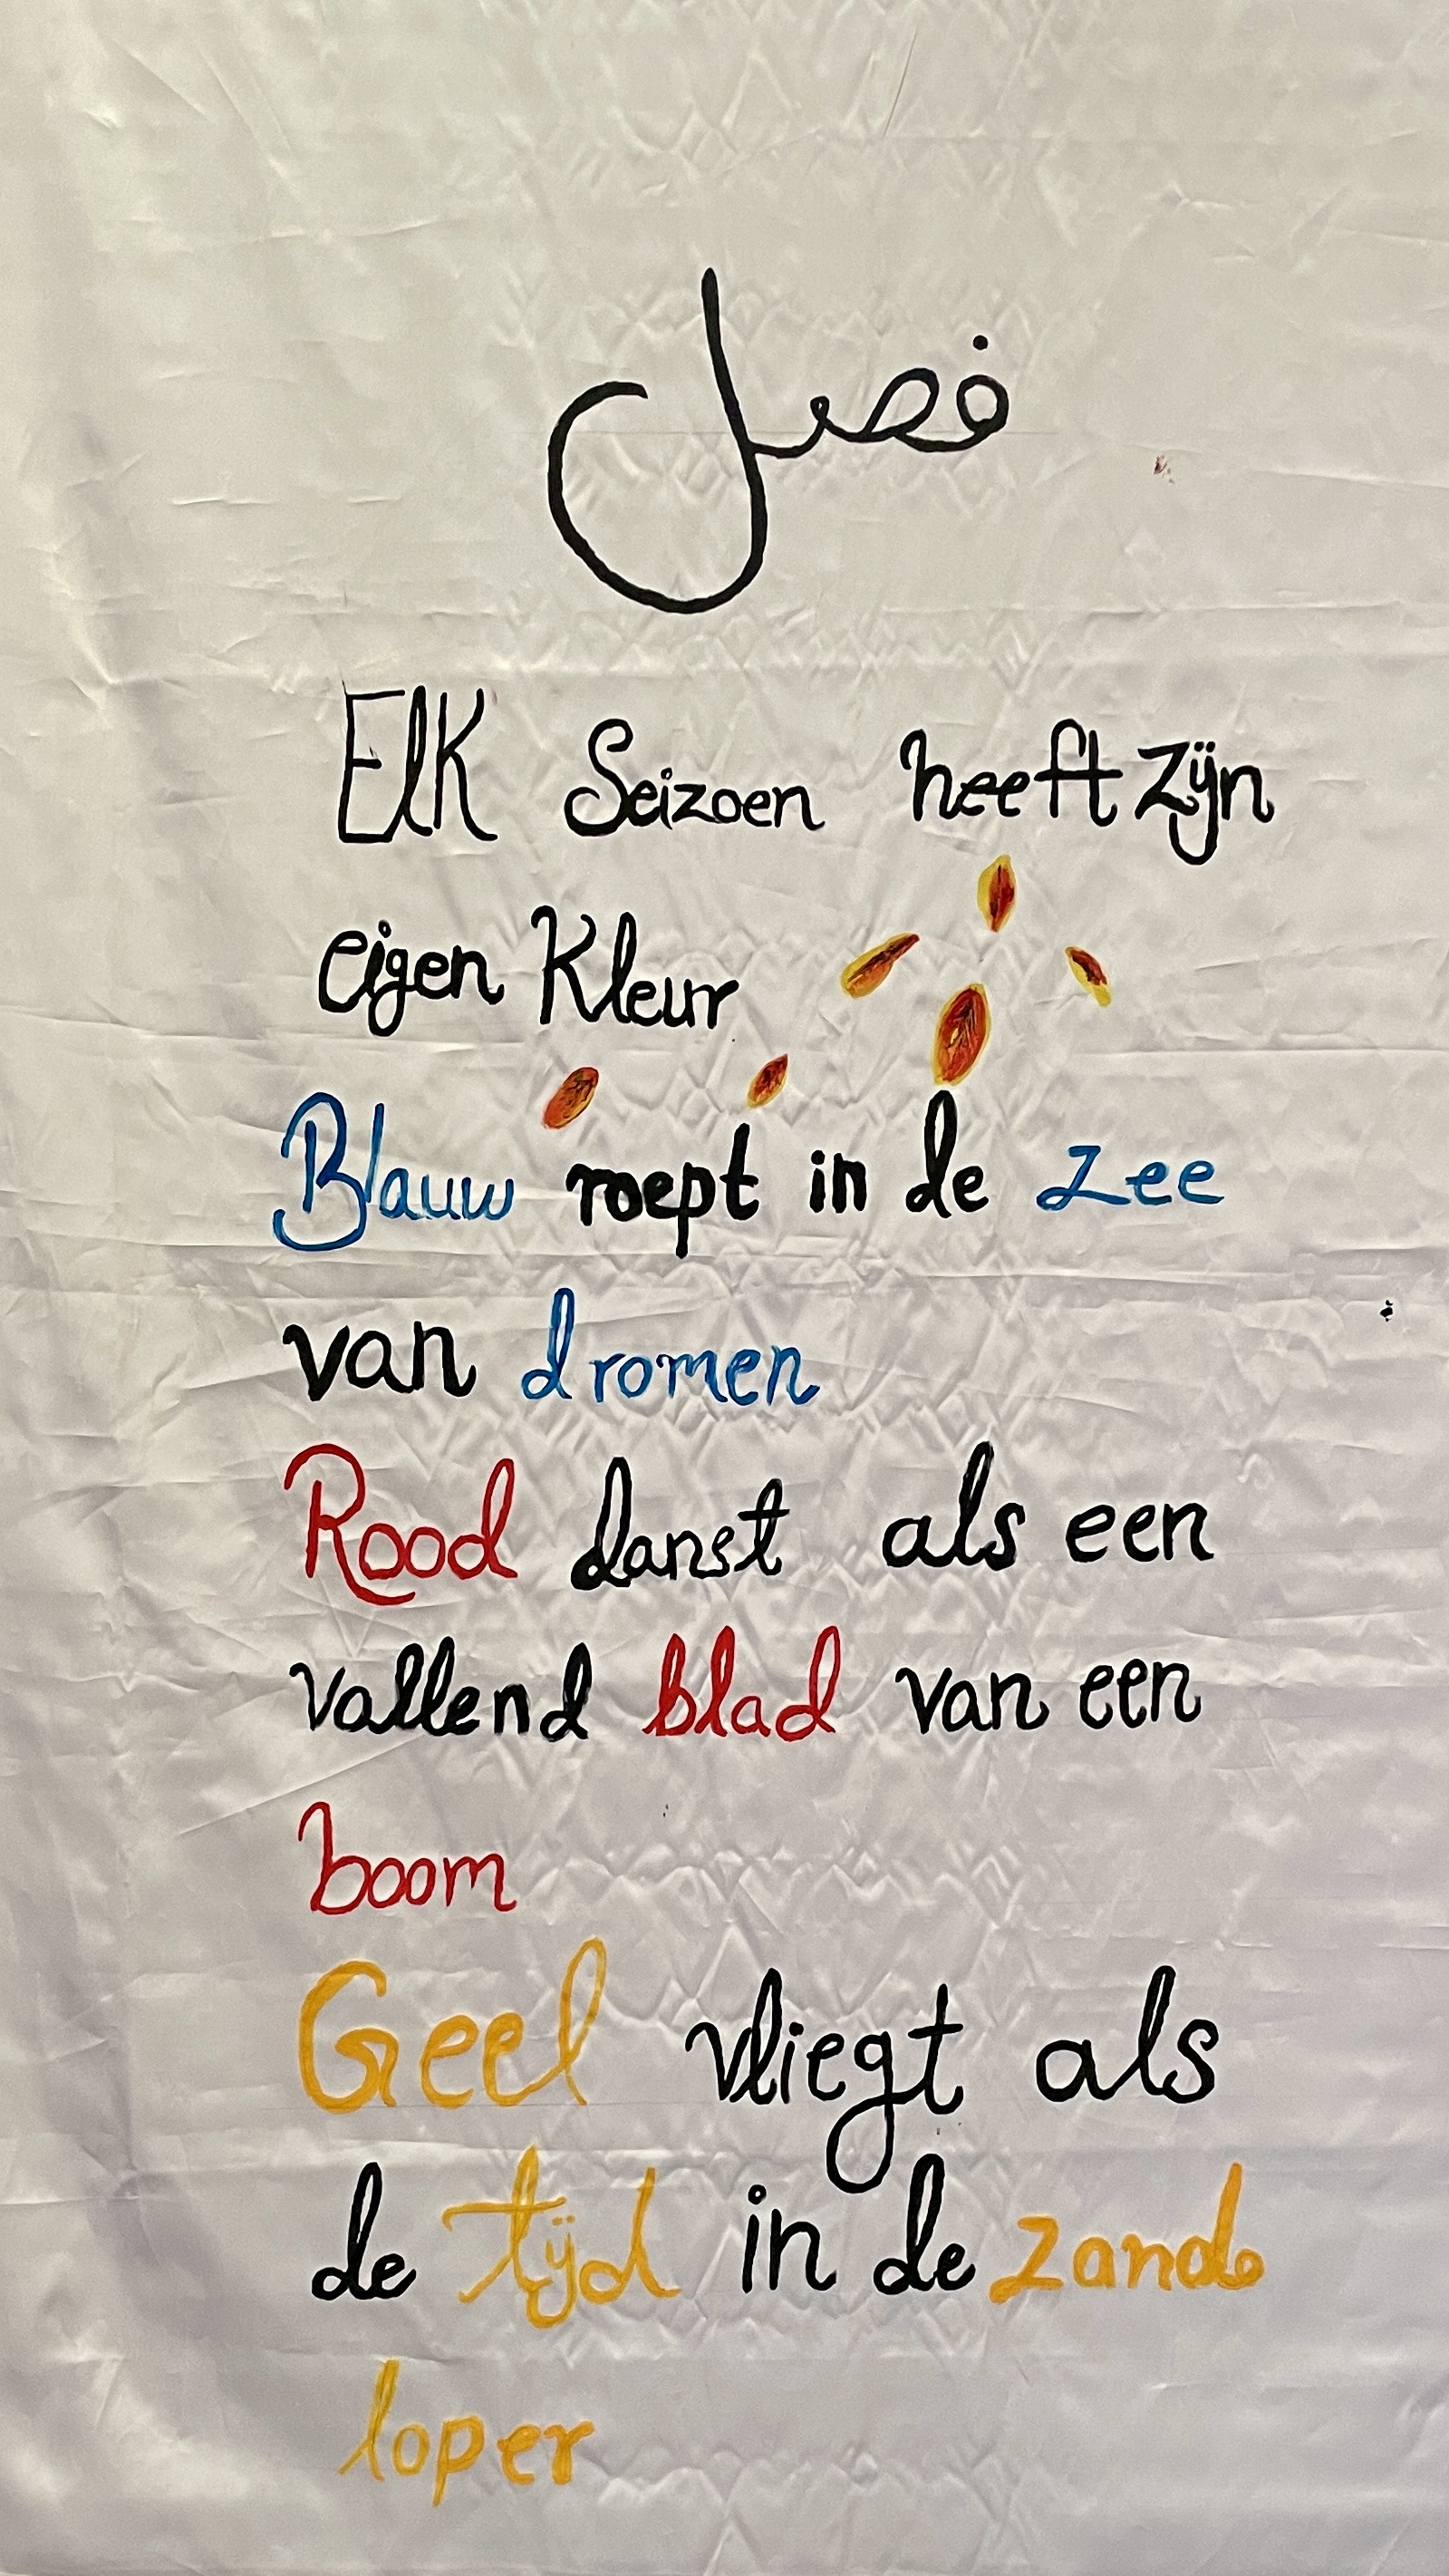 فصل
Elk Seizoen heeft zijn
eigen Kleur
Blauw roept in de zee
van dromen
Rood danst als een
vallend blad van een
boom
Geel vliegt als
de tijd in de zand
loper